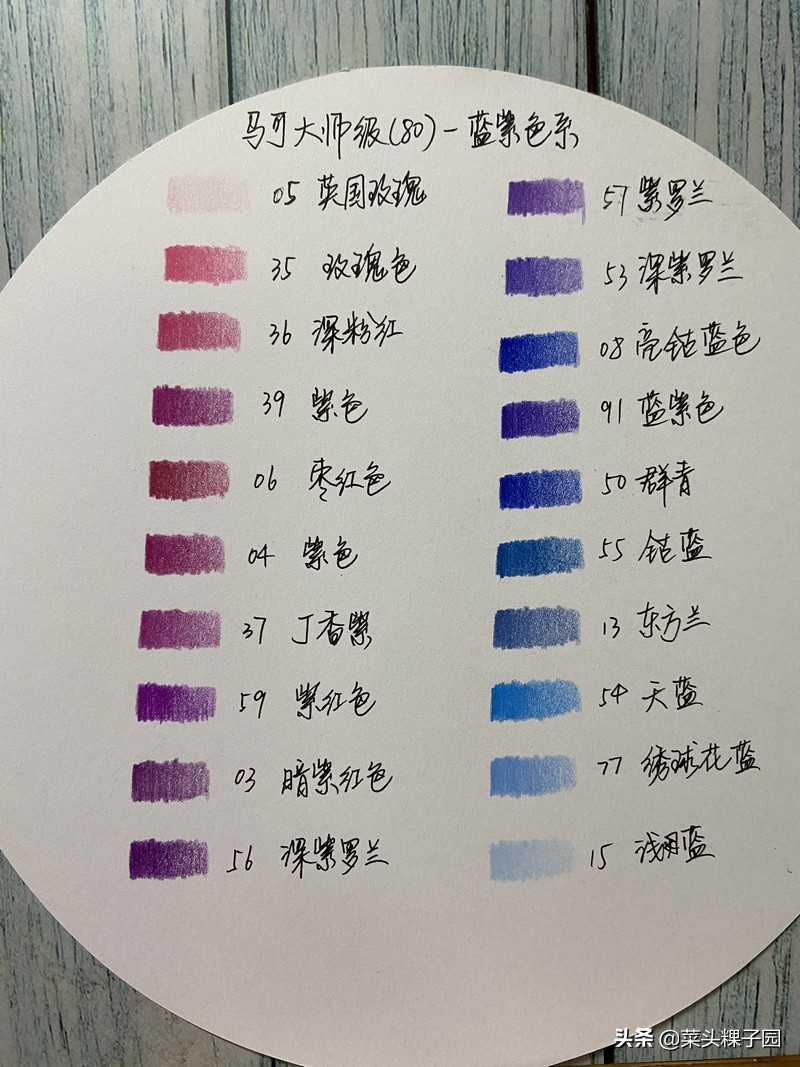 马可大师级(80)-蓝紫色系
05 英国玫瑰
35 玫瑰色
36 深粉红
39 紫色
06 枣红色
04 紫色
37 丁香紫
59 紫红色
03 暗紫红色
56 深紫罗兰
57 紫罗兰
53 深紫罗兰
08 亮钴蓝色
91 蓝紫色
50 群青
55 钴蓝
13 东方兰
54 天蓝
77 绣球花蓝
15 浅明蓝
头条 @菜头粿子园